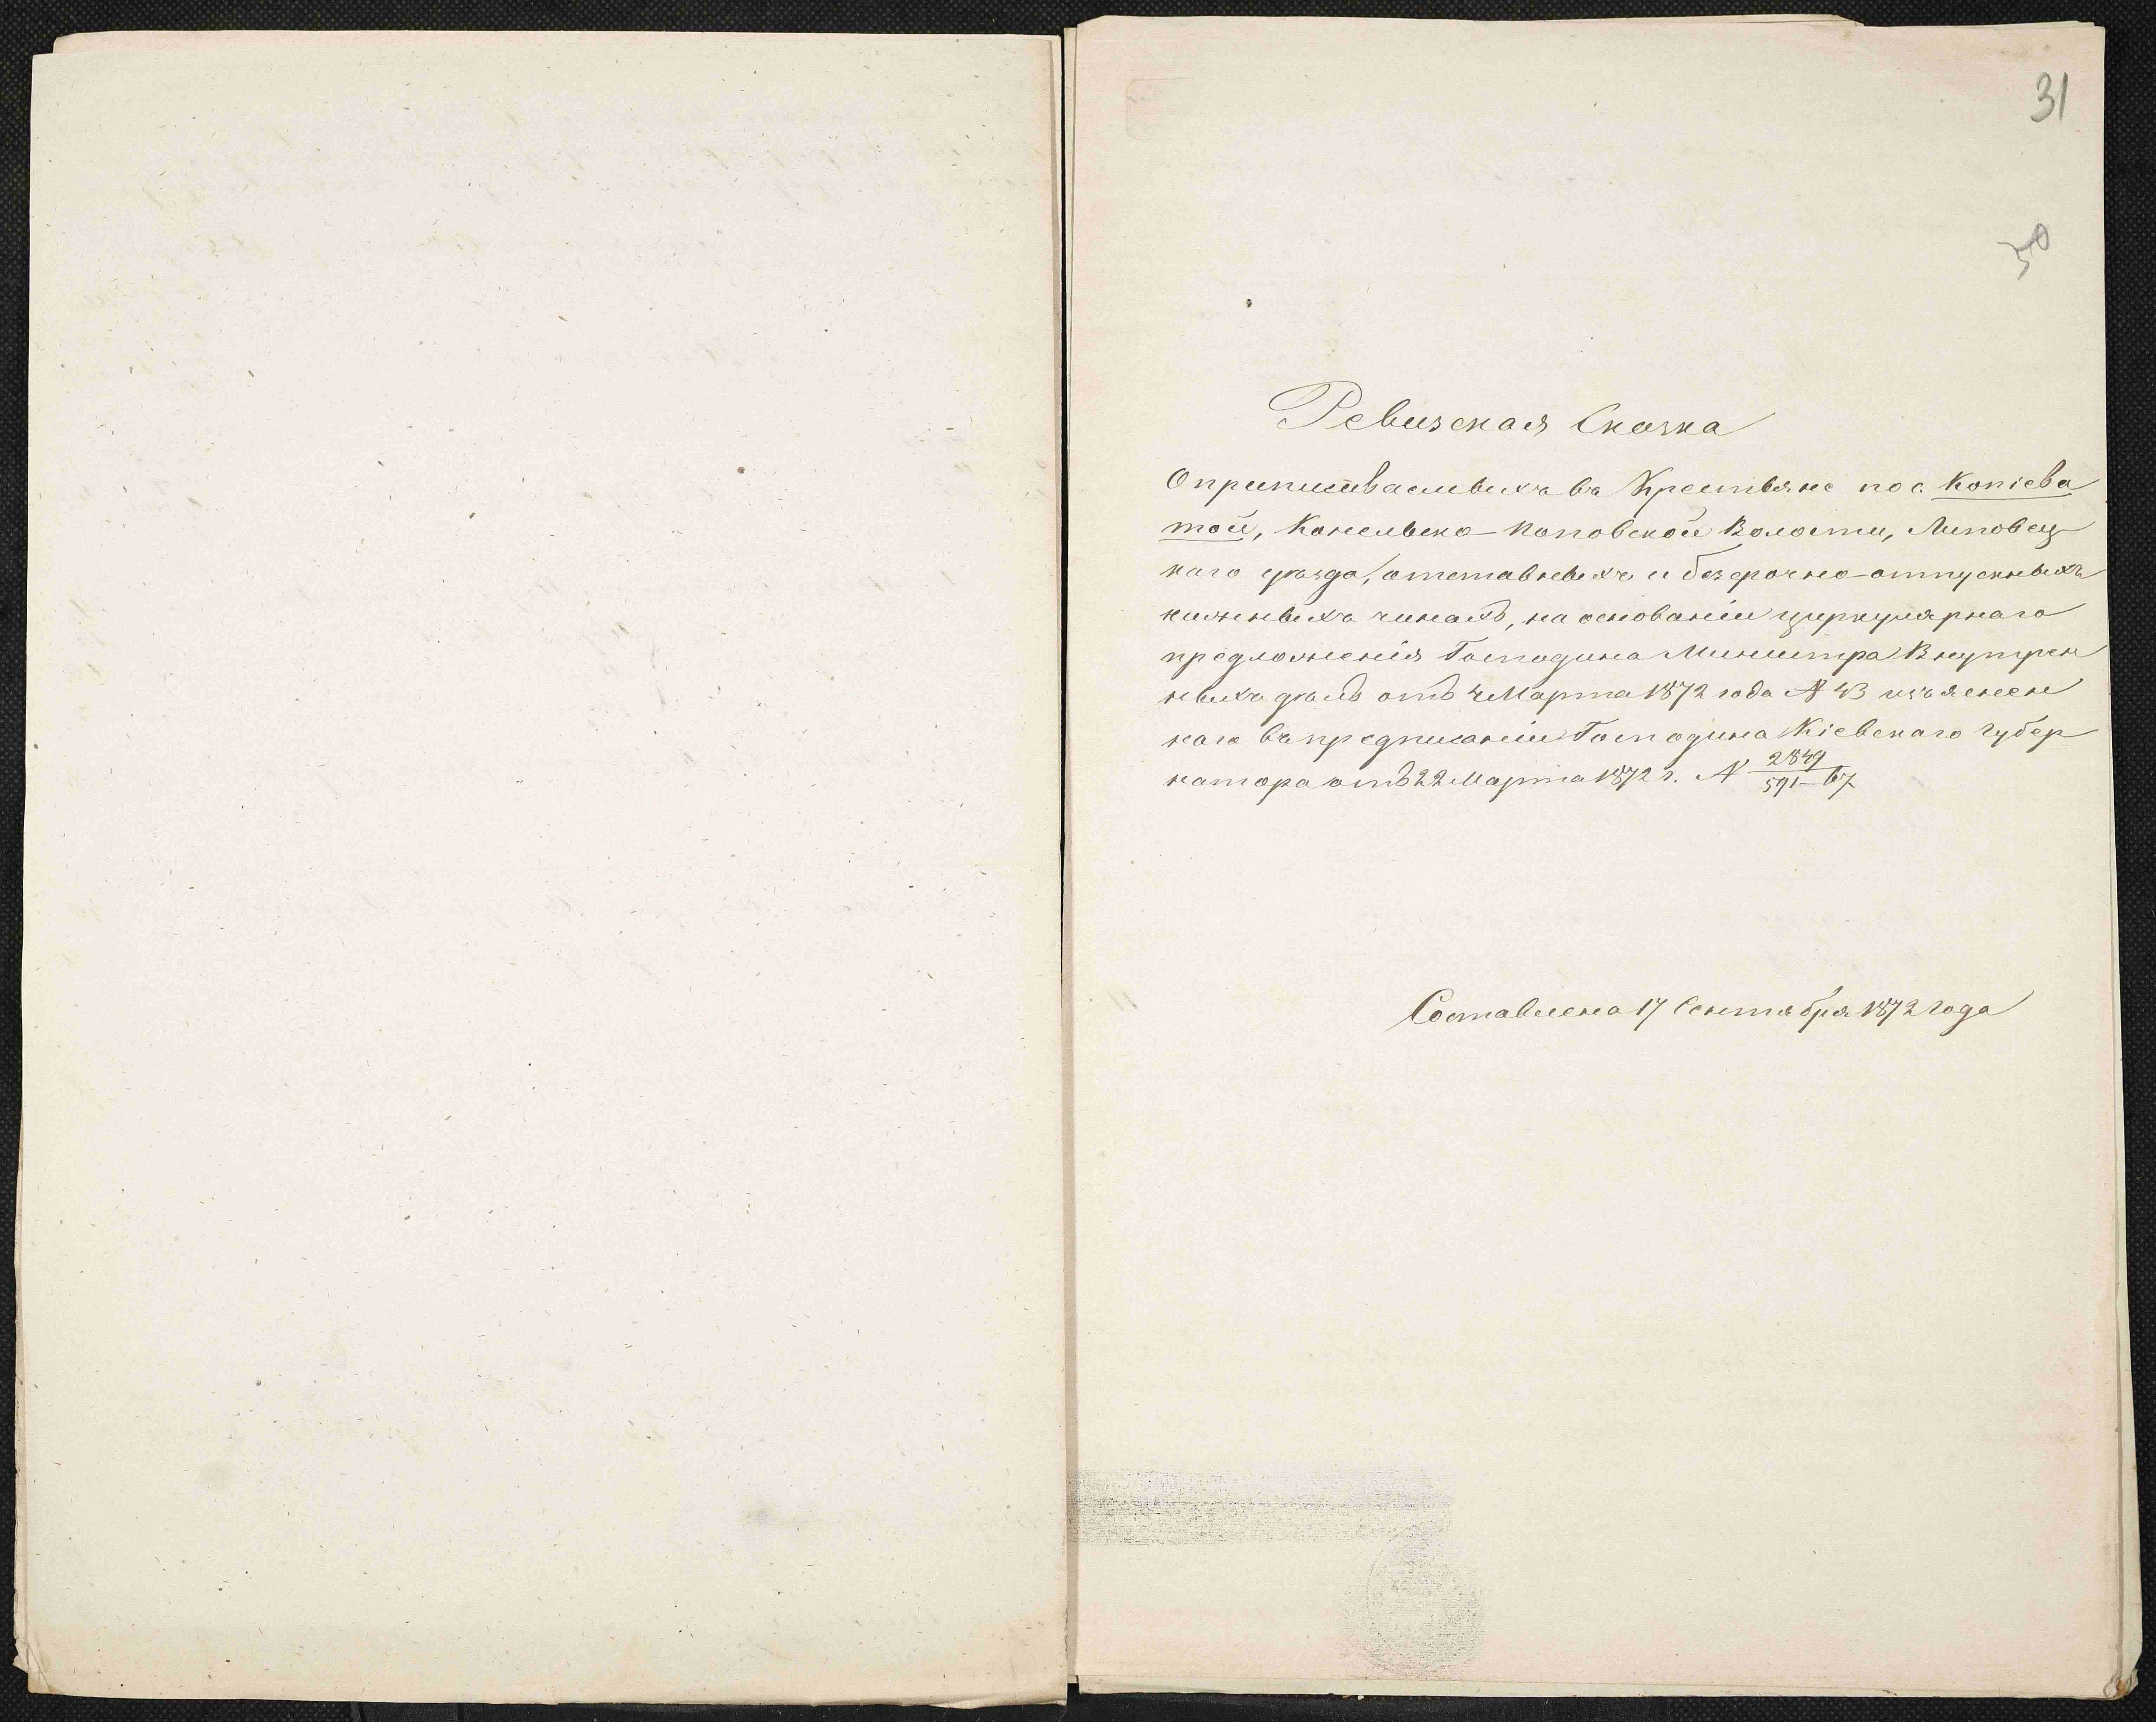 31
30
Ревизская Сказка
О приписываемыхъ въ Крестьяне по с. Копіева
той, Конельско-Поповской Волости, Липовец
каго уѣзда, отставныхъ и безсрочно-отпускныхъ
нижныхъ чинахъ, на основаніи циркулярнаго
предложенія Господина Министра Внутрен
ныхъ дѣлъ отъ 4 Марта 1872 года № 43 изъяснен
наго въ предписаніи Господина Кіевскаго Губер
натора отъ 22 Марта 1872 г. № 2849/591-67
Составлена 17 Сентября 1872 года